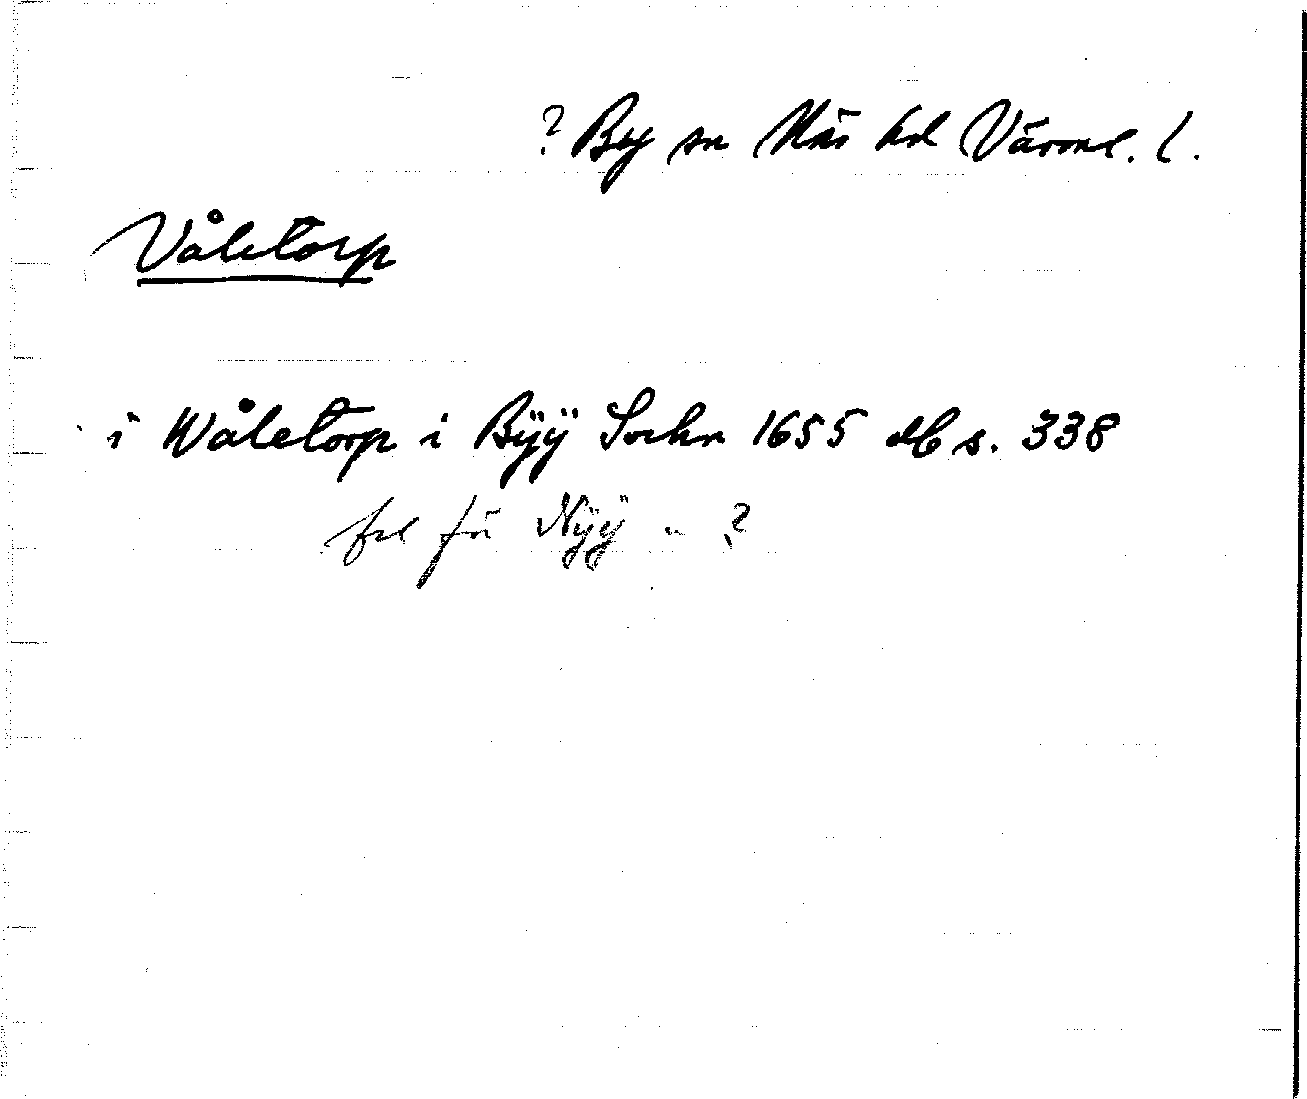 ? By sn Näs hd Värml. l.
Våletorp
i Wåletorp i Bÿÿ Sochn 1655 db s. 338
fel för Nÿÿ " ?